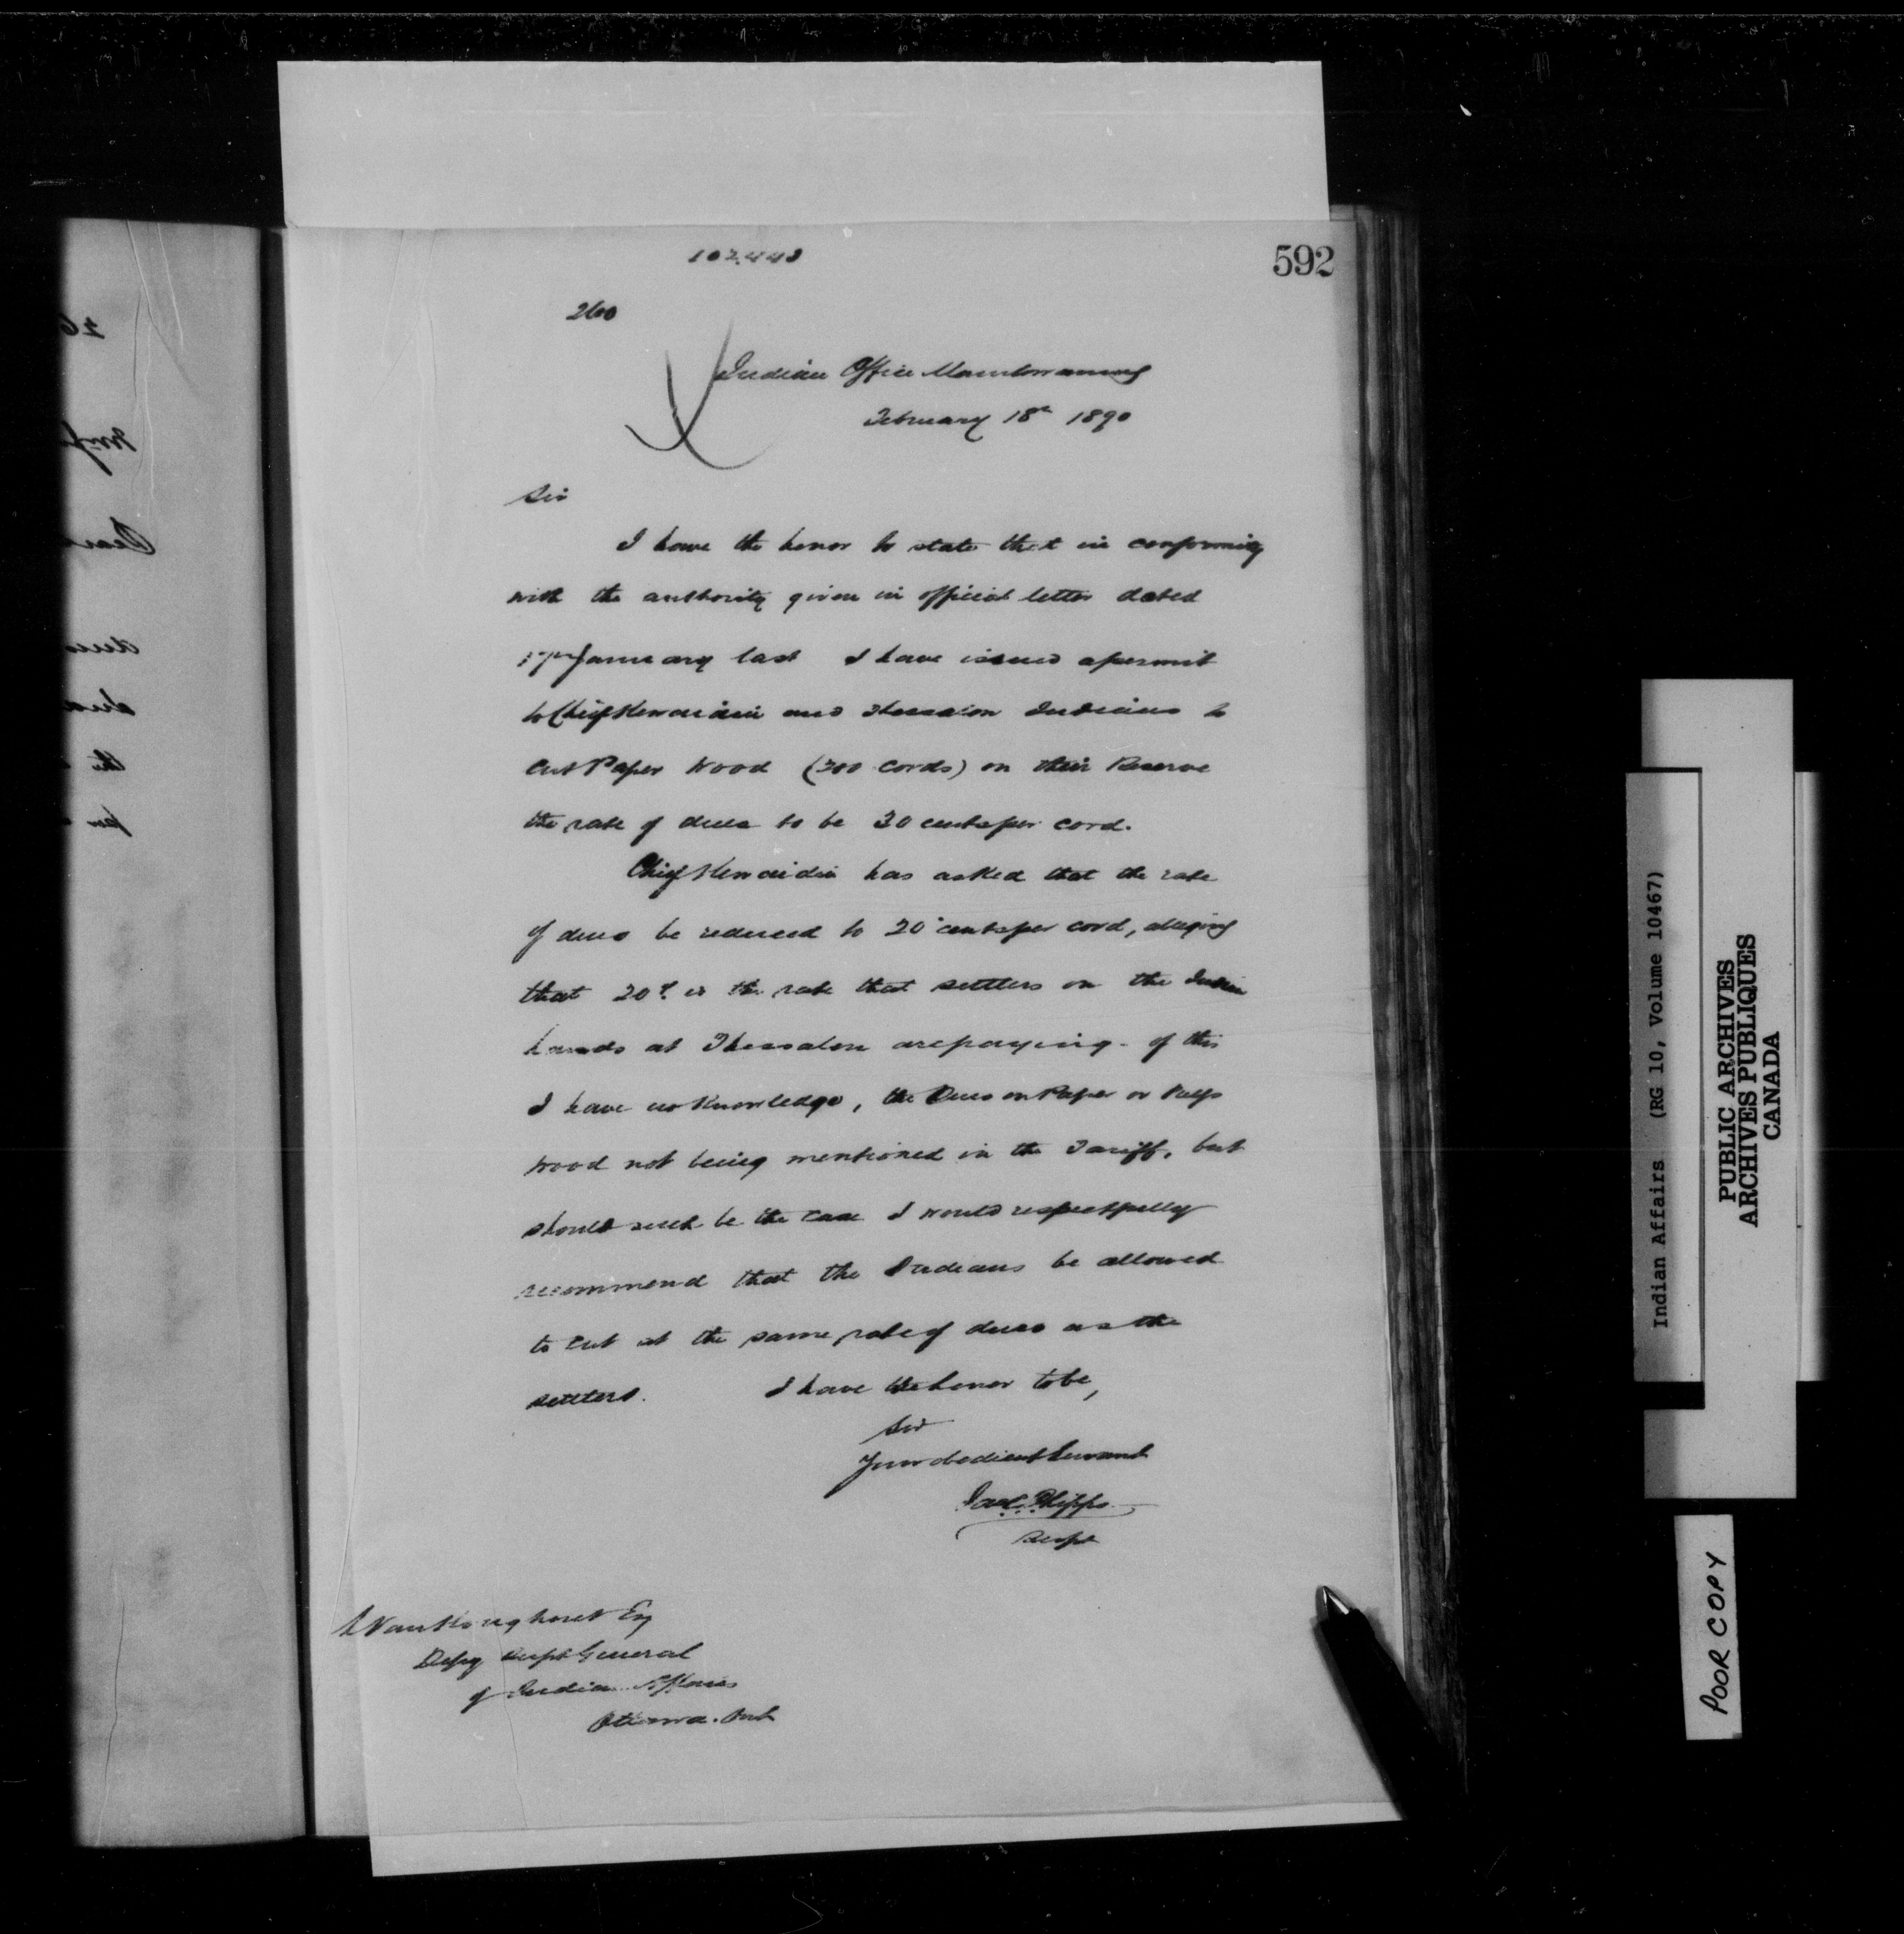 592
102,443
260
Indian Office Manitowaning
February 18th 1890
Sir
I have the honor to state that in conformity
with the authority given in official letter dated
17th January last I have issued a permit
to Chief and Thessalon Indians to
cut Paper Wood (300 cords) on their Reserve
the rate of dues to be 30 cents per cord.
Chief has asked that the rate
of dues be reduced to 20 cents per cord, alleging
that 20¢ is the rate that settlers on the Indian
Lands at Thessalon are paying - of this
I have no Knowledge, the Dues on Paper or Pulp
wood not being mentioned in the Tariff, but
should such be the case I would respectfully
recommend that the Indians be allowed
to cut at the same rate of dues as the
settlers. I have the honor to be,
Sir
Your obedient Servant
Jas C. Phipps
Supt
L Vankoughnet Esq
Depy Supt General
of Indian Affairs
Ottawa. Ont
Indian Affairs (RG 10, Volume 10467)
PUBLIC ARCHIVES
ARCHIVES PUBLIQUES
CANADA
POOR COPY